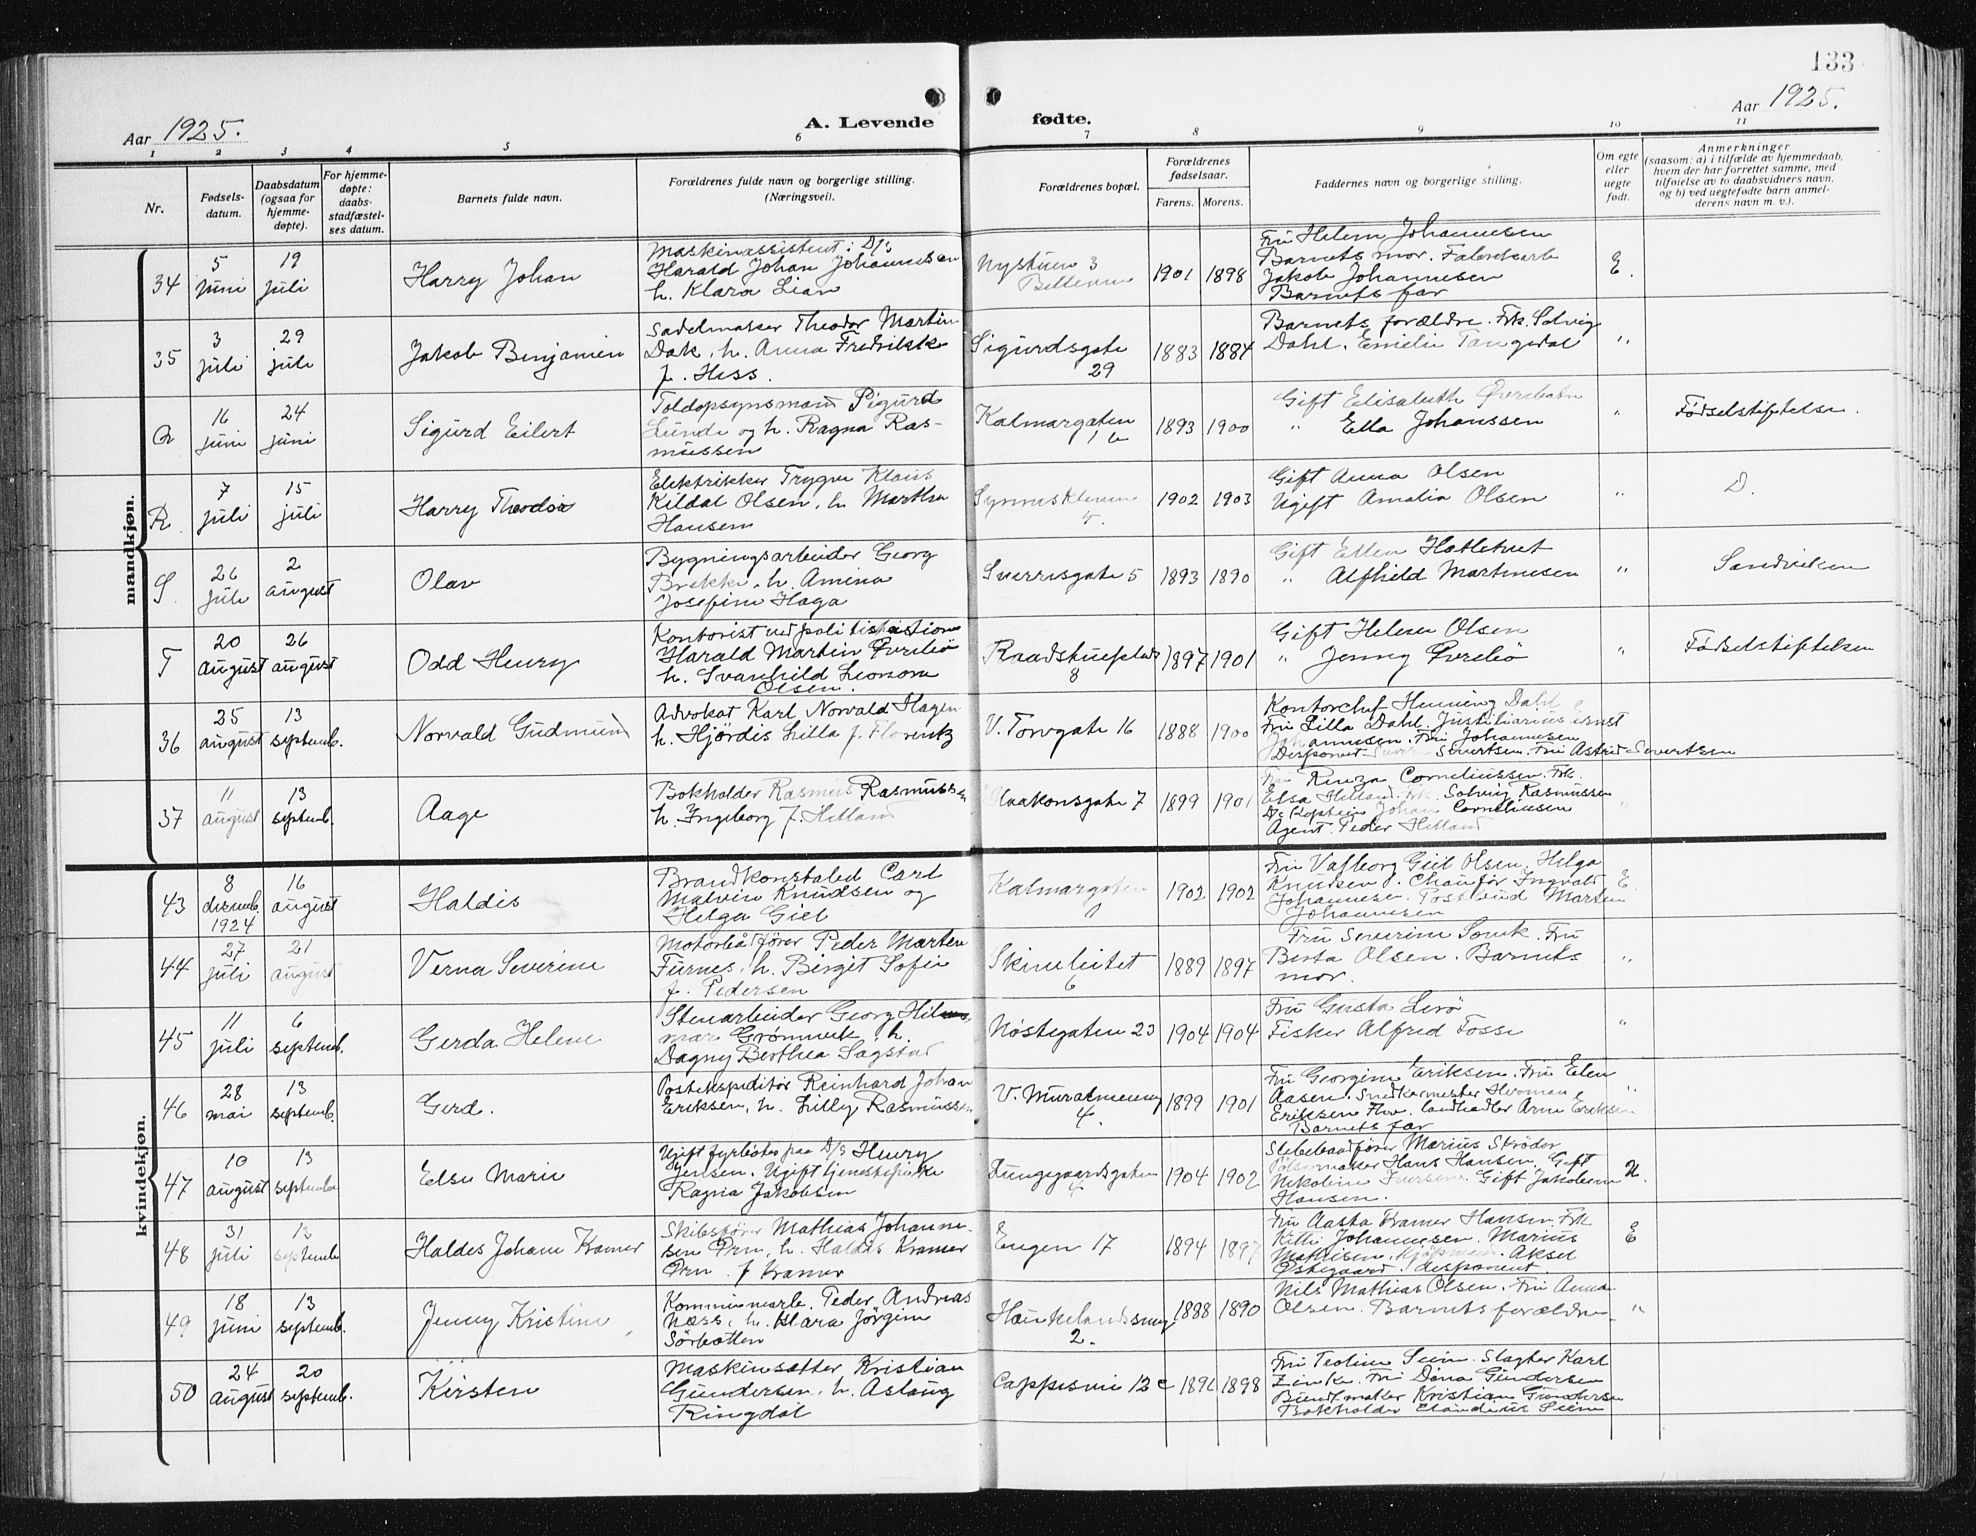 133
Aar 1925.
A. Levende
fødte.
Aar 1925.
1 2 3 4 5 6 7 8 9 10 11
Nr.
Fødsels-
datum.
Daabsdatum
(ogsaa for
hjemme-
døpte).
For hjemme-
døpte:
daabs-
stadfæstel-
ses datum.
Barnets fulde navn.
Forældrenes fulde navn og borgerlige stilling.
(Næringsvei).
Forældrenes bopæl.
Forældrenes
fødselsaar.
Farens. Morens.
Faddernes navn og stilling.
Om egte
eller
uegte
født.
Anmerkninger
(saasom: a) i tilfælde av hjemmedaab,
hvem der har forrettet samme, med
tilføielse av to daabsvidners navn,
og b) ved uegtefødte barn anmel-
derens navn m. v.).
mandkjøn.
34
5
juni
19
juli
Harry Johan
Maskinassistent i D/s
Harald Johan Johannessen
h. Klara Lian
Nystuen 3
1901 1898
Fru Helem Johannessen
Barnets mor. Fabrikarb.
Jakob Johannesen
Barnets far
E.
35
3
juli
29
juli
Jakob Benjamin
Sadelmaker Theodor Martin
Dahl, h. Anna Fredrikke
f. Hess.
Sigurdsgate
29
1883 1884
Barnets forældre. Frk. Solvig
Dahl. Emelie Tangedal
"
Q
16
juni
24
juni
Sigurd Eilert
Toldopsynsmand Sigurd
Lunde og h. Ragna Ras-
mussen
Kalmargaten
1893 1900
Gift Elisabeth
" Ella Johanssen
"
Fødselstiftelsen.
R.
7
juli
15
juli
Harry Theodor
Elektriker Trygve Klaus
Kildal Olsen, h. Martha
Hansen
1902 1903
Gift Anna Olsen
Ugift Amalia Olsen
"
D.
S.
26
juli
2
august
Olav
Bygningsarbeider Georg
Brekke, h. Amina
Josefine Haga
Sverresgate 5
1893 1890
Gift Ellen Hatletvet
" Alfhild Martinsen
"
Sandviken
T
20
august
26
august
Odd Henry
Kontorist ved politistation
Harald Martin Øvrebø
h. Svanhild Leonora
Olsen.
Raadstueplads
8
1897 1901
Gift Helene Olsen
" Jenny Øvrebø
"
Fødselstiftelsen
36
25
august
13
septemb.
Norvald Gudmund
Advokat Karl Norvald Hagen
h. Hjördis Lilla f. Florentz
V. Torvgate 16
1888 1900
Kontorchef Henning Dahl
Fru Lilla Dahl. Justitiarius Ernst
Johannesen. Fru Johannesen
Disponent Severtsen. Fru Astrid Severtsen
37
11
august
13
septemb.
Aage
Bokholder Rasmus Rasmussen
h. Ingeborg f. Hetland
Haakonsgate 7
1899 1901
Fru Corneliussen. Frk.
Elsa Hetland. Frk. Solveig Rasmussen
Johan Corneliusen
Agent Peder Hetland
"
kvindekjøn.
43
8
desemb.
1924
16
august
Haldis
Brandkonstabel Carl
Malvin Knudsen og
Helga Giel
Kalmargaten
1902 1902
Fru Valborg Giel Olsen. Helga
Knudsen. Chaufør Ingvald
Johannesen. Postbud Marten
Johannesen
E.
44
27
juli
21
august
Verna Severine
Motorbåtfører Peder Marten
Furnes, h. Birgit Sofie
f. Pedersen
Skiveleitet
6
1889 1897
Fru Severine Fru
Berta Olsen. Barnets
mor.
"
45
11
juli
6
septemb.
Gerda Helene
Stenarbeider Georg Hil-
mar h.
Dagny Berthea Sagstad
Nøstegaten 23
1904 1904
Fru Gusta Lerö
Fisker Alfred Fosse
"
46
28
mai
13
septemb.
Gerd.
Postekspeditør Reinhard Johan
Eriksen, h. Lilly Rasmussen
V. Muralmenng
4.
1899 1901
Fru Georgine Eriksen. Fru Elen
Aasen. Snedkermester Herman
Eriksen Flor. landhandler Arne Eriksen
Barnets far
"
47
10
august
13
septemb.
Else Marie
Ugift fyrbøter paa D/s Henry
Jensen. Ugift tjenestepike
Ragna Jakobsen
1904 1902
Slebebaadfører Marius Strøder
Pølsemaker Hans Hansen. Gift
Nikoline Iversen. Gift Jakobine
Hansen.
U.
48
31
juli
13
septemb.
Haldis Johanne Kramer
Skibsfører Mathias Johanne-
sen h. Haldis Kramer
f Kramer
Engen 17
1894 1897
Fru Aasta Kramer Hansen. Frk
Johannesen. Marius
Mathisen, kjøpmann. Aksel
Østegaard, disponent.
E
49
18
juni
13
septemb.
Jenny Kristine
Kommunearb. Peder Andreas
Næss, h. Klara Jörgine
Sörbotten
Haukelandsveng
2.
1888 1890
Nils Mathias Olsen. Fru Anna
Olsen. Barnets forældre
"
50
24
august
20
septemb.
Kirsten
Maskinsætter Kristian
Gundersen, h. Aslaug
Ringdal
Cappesmu 12 c
1898
Fru Teoline Seim. Slagter Karl
Zinke. Fru Dina Gundersen
Buntmaker Kristian Gundersen
Bokholder Claudius Seim